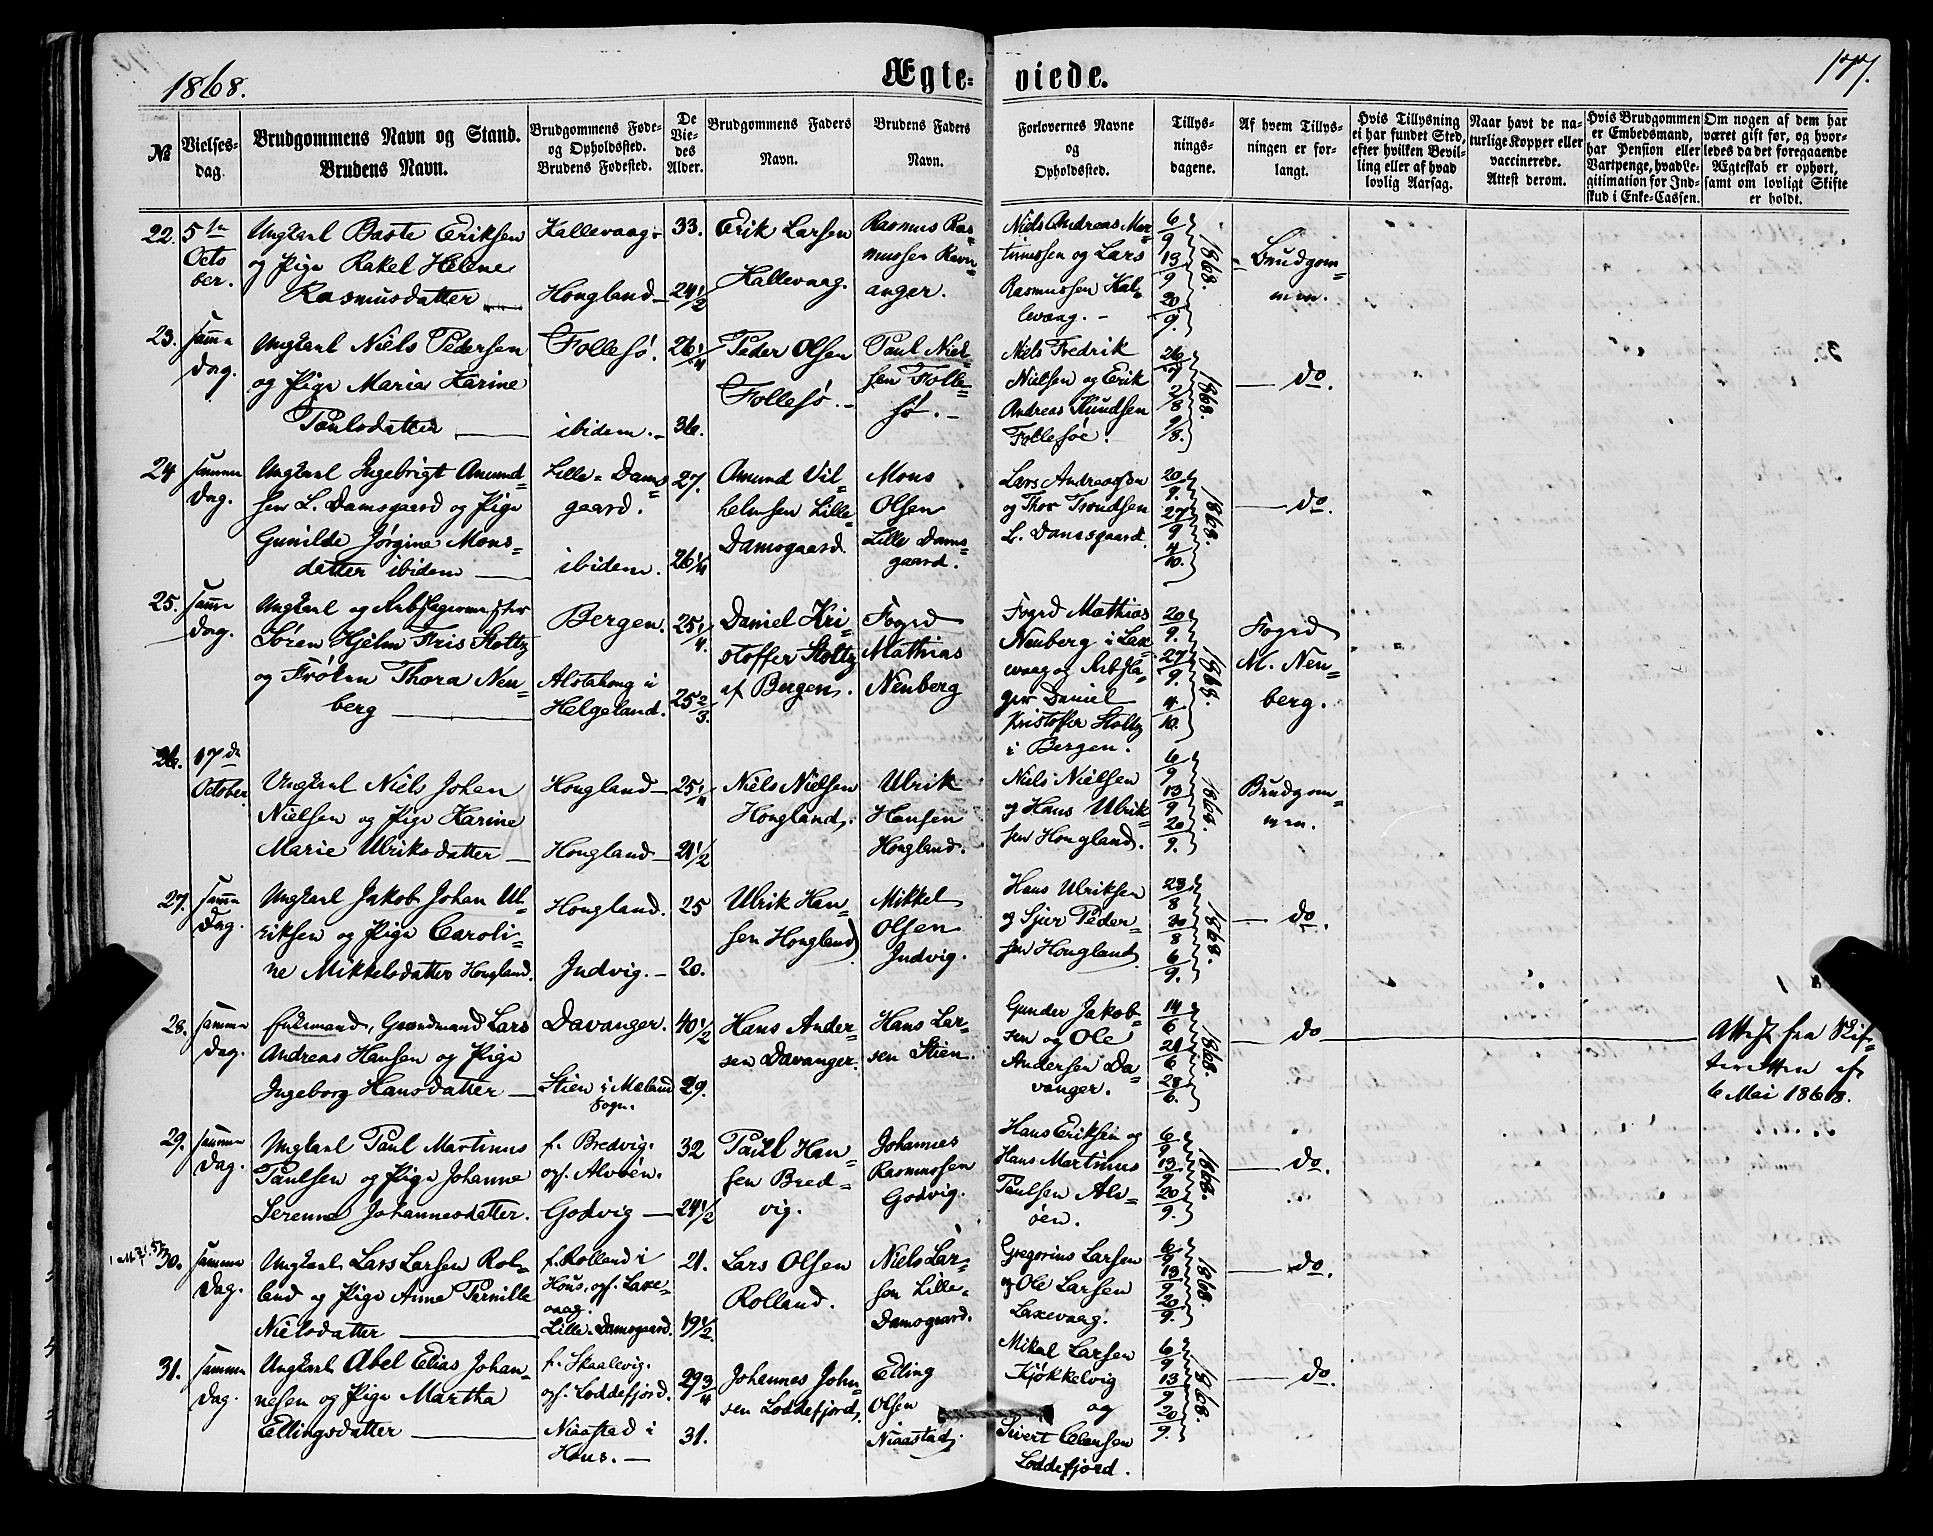 1868.
Ægte-
viede.
177.
№
Vielses-
dag.
Brudgommens Navn og Stand.
Brudens Navn.
Brudgommens Føde-
og Opholdssted.
Brudens Fødested.
De
Vie-
des
Alder.
Brudgommens Faders
Navn.
Brudens Faders
Navn.
Forlovernes Navne
og
Opholdssted.
Tillys-
nings-
dagene.
Af hvem Tillys-
ningen er for-
langt.
Hvis Tillysning
ei har fundet Sted,
efter hvilken Bevil-
ling eller af hvad
lovlig Aarsag.
Naar havt de na-
turlige Kopper eller
vaccinerede.
Attest derom.
Hvis Brudgommen
er Embedsmand,
har Pension eller
Vartpenge, hvad Le-
gitimation for Ind-
skud i Enke-Cassen.
Om nogen af dem har
været gift før, og hvor-
ledes da det foregaaende
Ægteskab er ophørt,
samt om lovligt Skifte
er holdt.
22.
5te
Octo
ber.
Ungkarl Baste Eriksen
og Pige Rakel Helene
Rasmusdatter
Kallevaag
Hougland
33.
24 1/2
Erik Larsen
Kallevaag.
Rasmus Ras-
mussen Ravn-
anger.
Niels Andreas Mar-
tinussen og Lars
Rasmussen Kal-
levaag.
6/9 13/9 20/9 1868.
Brudgom-
men.
23.
samme
Dag.
Ungkarl Niels Pedersen
og Pige Maria Karine
Paulsdatter
Follesø.
ibidem.
26 1/4
36.
Peder Olsen
Follesø.
Paul Niel
sen Folle-
sø.
Niels Fredrik
Nielsen og Erik
Andreas Knudsen
Follesøe.
26/7 2/8 9/8. 1868.
do.
24
samme
Dag.
Ungkarl Ingebrigt Amund-
sen L. Damsgaard og Pige
Gunilde Jørgine Mons-
datter ibidem
Lille-Dams-
gaard.
ibidem.
27.
26 1/4
Amund Vil-
helmsen Lille-
Damsgaard.
Mons
Olsen
Lille Dams-
gaard.
Lars Andreassen
og Thor Trondsen
L. Damsgaard.
20/9. 27/9 4/10. 1868.
do.
25.
samme
Dag.
Ungkarl og
Søren Hjelm Friis Stoltz
og Frøken Thora Neu-
berg
Bergen.
Alstahoug i
Helgeland.
25 1/4.
25 2/3.
Daniel Kri-
stoffer Stoltz
af Bergen.
Fogd
Mathias
Neuberg
Fogd Mathias
Neuberg i Lax-
evaag og
Daniel
Kristoffer Stoltz
i Bergen.
20/9. 27/9. 4/10. 1868.
Fogd
M. Neu-
berg.
26.
17de
October
Ungkarl Niels Johan
Nielsen og Pige Karine
Marie Ulriksdatter
Hougland
Hougland
25 1/4
21 1/2
Niels Nielsen
Hougland.
Ulrik
Hansen
Hougland.
Niels Nielsen
og Hans Ulrik-
sen Hougland.
6/9 13/9 20/9. 1868.
Brudgom-
men.
27.
samme
Dag.
Ungkarl Jakob Johan Ul-
riksen og Pige Caroli-
ne Mikkelsdatter Hougland.
Hougland.
Indvig.
25
20.
Ulrik Han-
sen Hougland
Mikkel
Olsen
Indvig.
Hans Ulriksen
og Sjur Peder-
sen Hougland.
23/8 30/8 6/9. 1868.
do.
28.
samme
Dag.
Enkemand, Grandmand Lars
Andreas Hansen og Pige
Ingeborg Hansdatter
Davanger.
Stien i Maland
Sogn.
40 1/2
29.
Hans Ander-
sen Davanger.
Hans Lar-
sen Stien.
Gunder Jakob-
sen og Ole
Andersen Da-
vanger.
14/6 21/6 28/6. 1868.
do
Attest fra Skif-
teretten af
6 Mai 1868.
29.
samme
Dag.
Ungkarl Paul Martinus
Paulsen og Pige Johanne
Serenne Johannesdatter.
f. Bredvig.
opf. Alvøen.
Godvig
32
24 1/2
Paul Han-
sen Bred-
vig.
Johannes
Rasmussen
Godvig.
Hans Eriksen og
Hans Martinus
Paulsen Alv-
øen.
6/9 13/9 20/9. 1868.
do.
30.
samme
Dag.
Ungkarl Lars Larsen Rol-
land og Pige Anne Pernille
Nielsdatter
f. Rolland i
Hous, opf. Laxe-
vaag.
Lille-Damsgaard.
21.
19 1/2.
Lars Olsen
Rolland.
Niels Lar-
sen Lille-
Damsgaard.
Gregorius Larsen
og Ole Larsen
Laxevaag.
6/9 13/9 20/9. 1868.
do.
31.
samme
Dag.
Ungkarl Abel Elias Johan-
nesen og Pige Martha
Ellingsdatter
f. Skaalevig.
opf. Loddefjord.
Niaastad i
Hous.
29 3/4
31.
Johannes John-
sen Loddefjord.
Elling
Olsen
Niaastad.
Mikal Larsen
Kjøkkelvig
og
Sivert Clausen
Loddefjord.
6/9 13/9 20/9. 1868.
do.